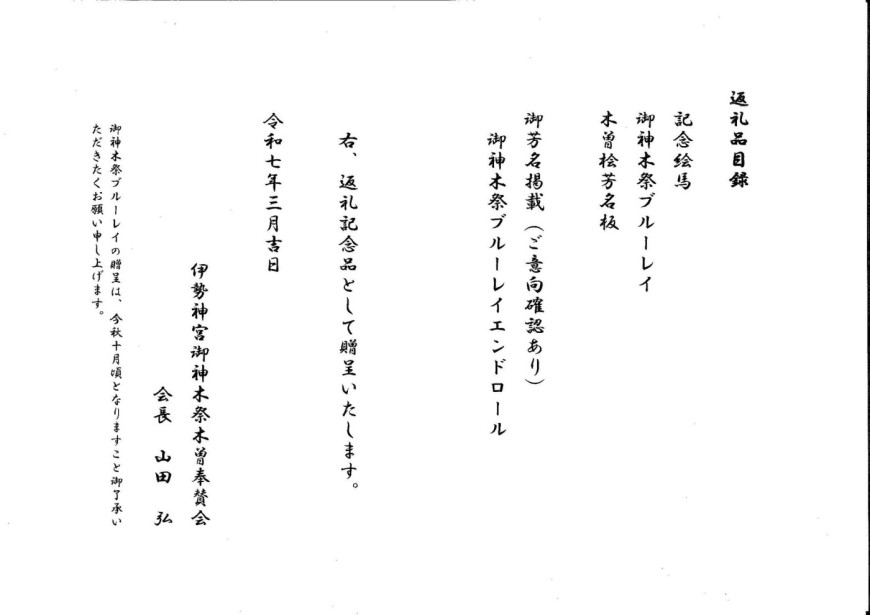 返礼品目録
記念絵馬
御神木祭ブルーレイ
木曽桧芳名板
御芳名掲載(ご意向確認あり)
御神木祭ブルーレイエンドロール
右、返礼記念品として贈呈いたします。
令和七年三月吉日
伊勢神宮御神木祭木曽奉賛会
会長 山田 弘
御神木祭ブルーレイの贈呈は、今秋十月頃となりますこと御了承い
ただきたくお願い申し上げます。